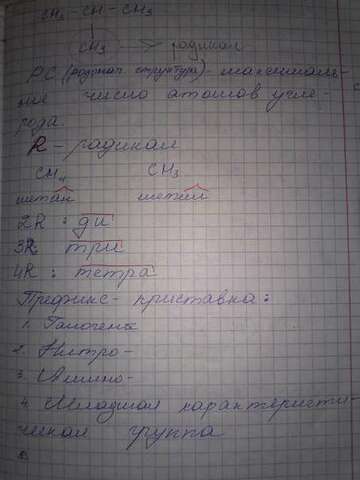 CH₃ - CH - CH₃
CH₃ → радикал
РС (родонач. структура) - максималь-
ное число атомов угле-
рода.
R - радикал
CH₄ CH₃
метан метил
2R : ди
3R : три
4R : тетра
Префикс - приставка:
1. Галогены
2. Нитро-
3. Амино-
4. Младшая характеристи-
ческая группа